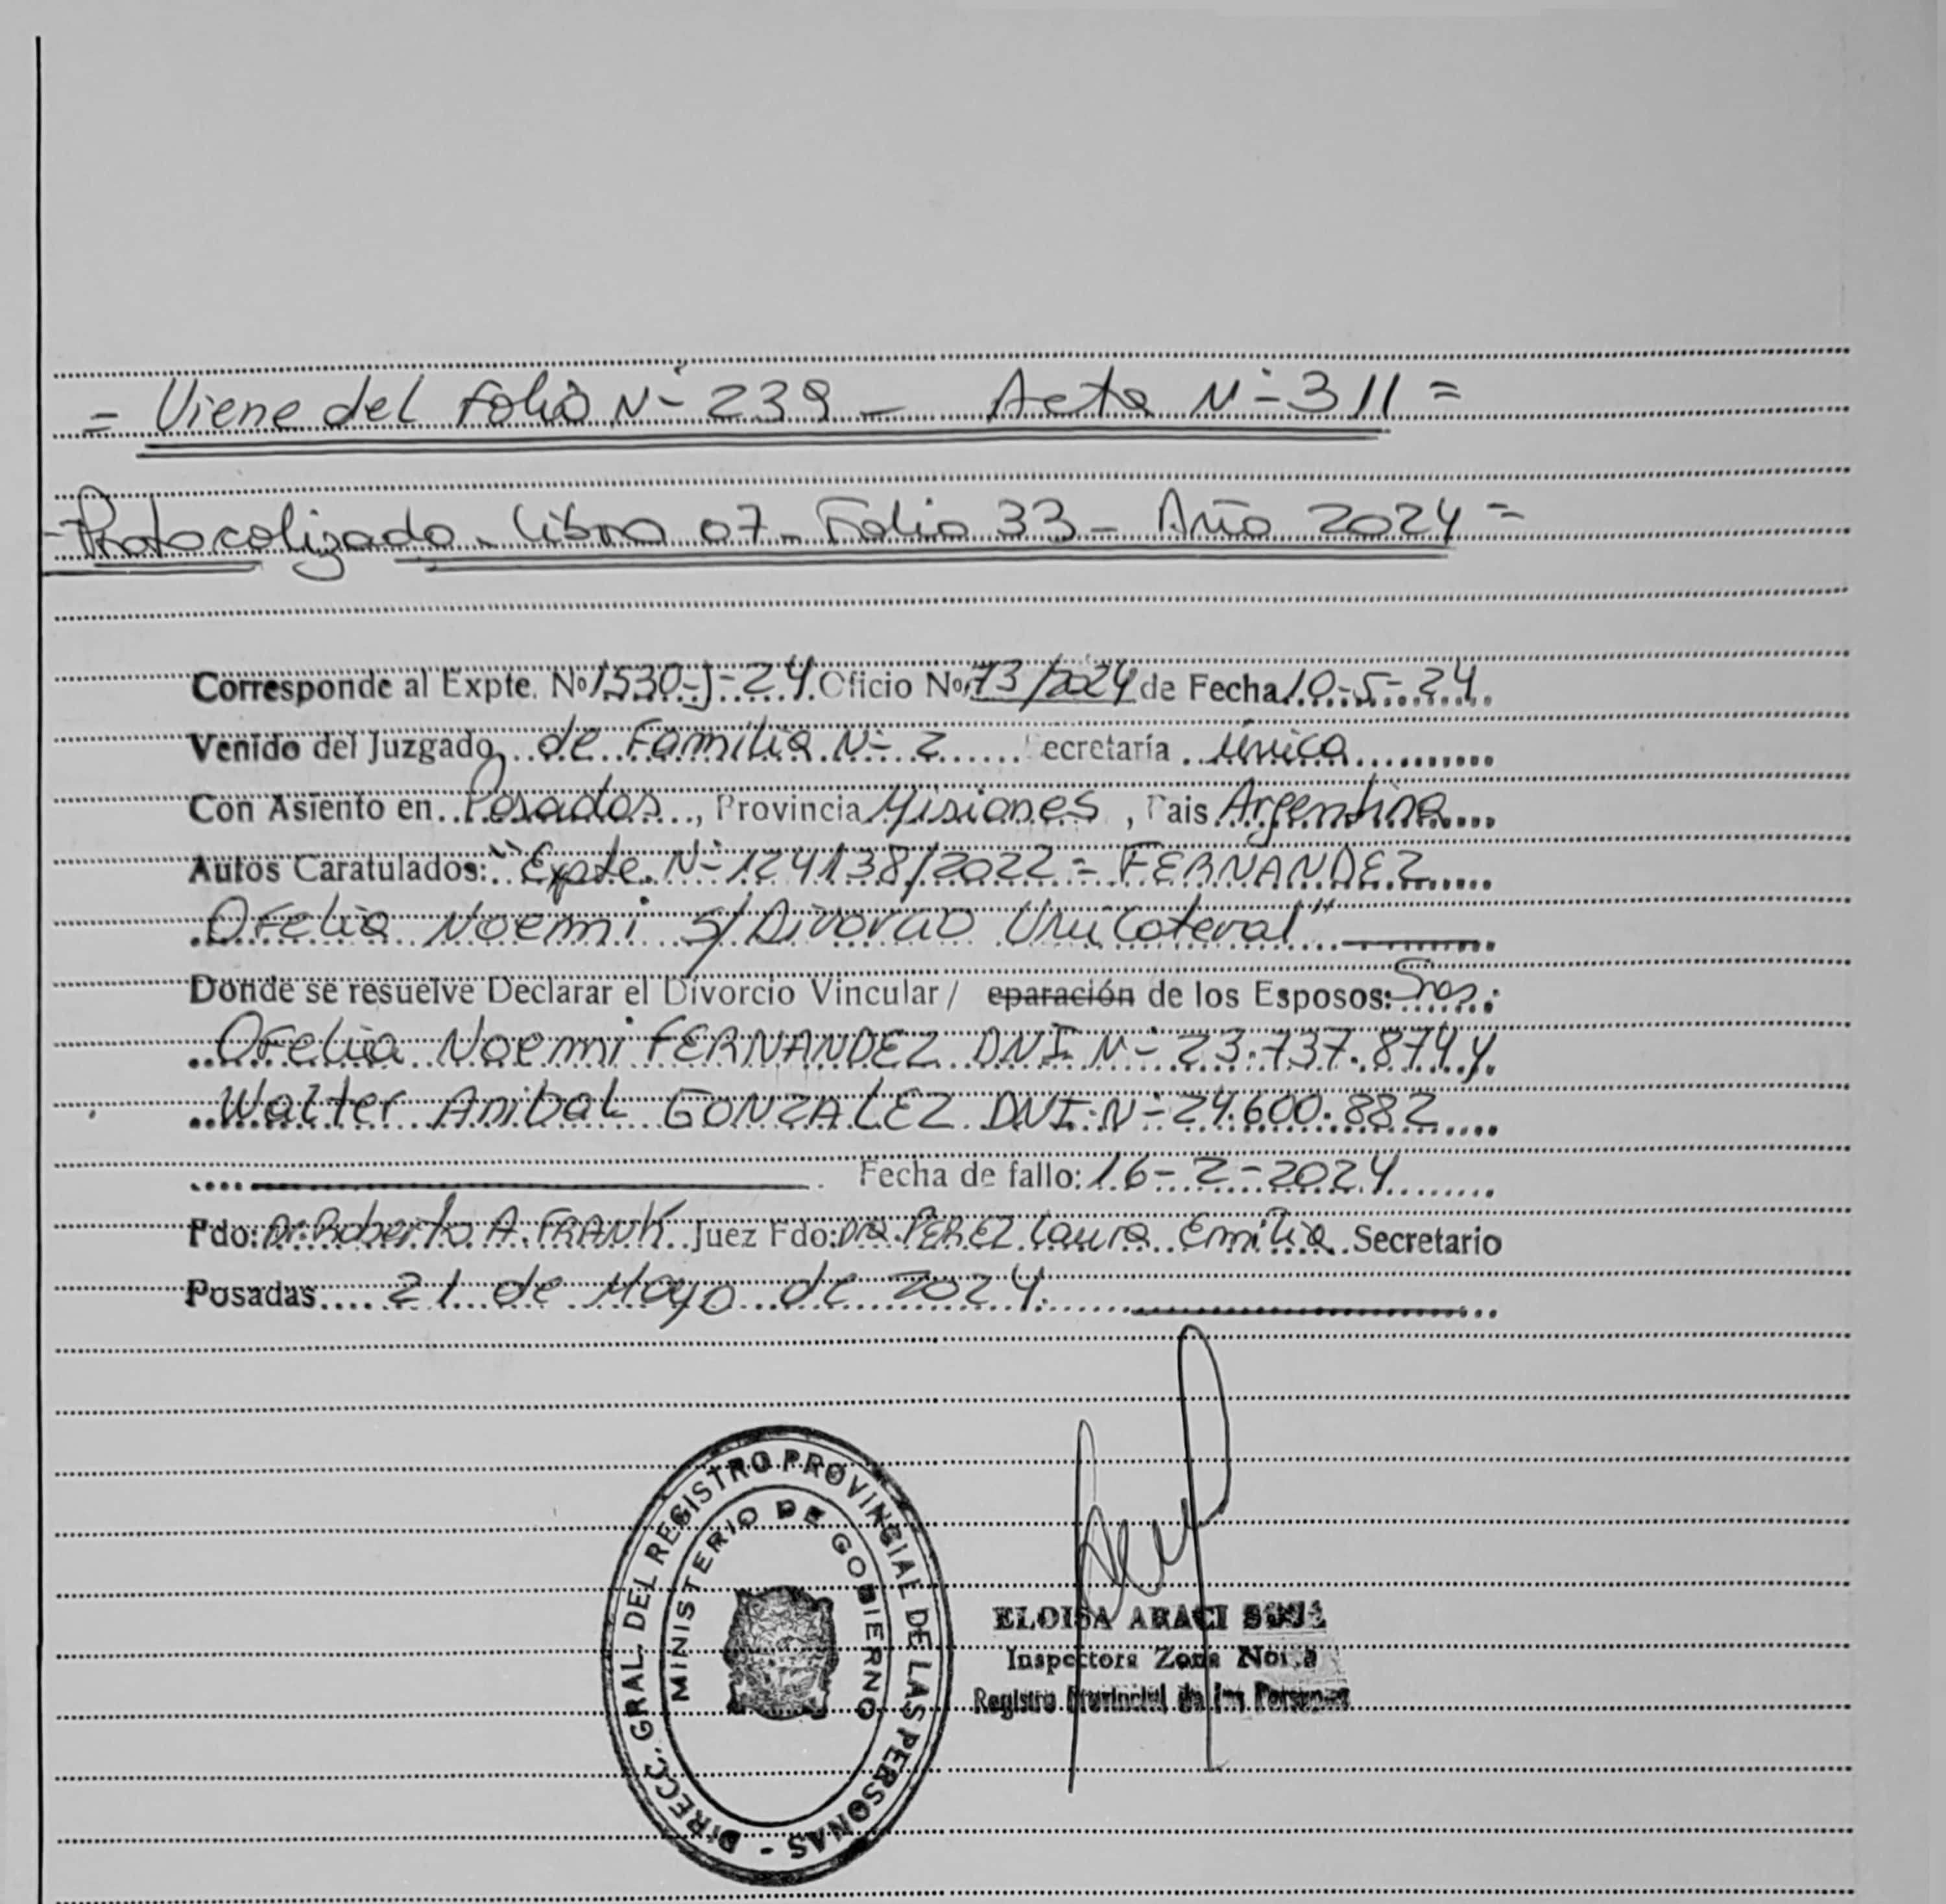 = Viene del folio Nº 239 - Acta Nº 311 =
- Protocolizado - Libro 07 - Folio 33 - Año 2024 =
Corresponde al Expte. Nº 1530-J-24. Oficio Nº 73/2024 de Fecha 10-5-24.
Venido del Juzgado de Familia Nº 2 ecretaría única
Con Asiento en Posadas, Provincia Misiones, Pais Argentina
Autos Caratulados: "Expte. Nº 124138/2022 = FERNANDEZ
Ofelia Noemi s/ Divorcio Unilateral"
Donde se resuelve Declarar el Divorcio Vincular / eparación de los Esposos: Sres.:
Ofelia Noemi FERNANDEZ DNI Nº 23.737.874 y
Walter Anibal GONZALEZ DNI: Nº 24.600.882
Fecha de fallo: 16-2-2024
Fdo: Dr. Roberto A. FRANK Juez Fdo: Dra. PEREZ Laura Emilia Secretario
Posadas 21 de Mayo de 2024.
DIRECC. GRAL. DEL REGISTRO PROVINCIAL DE LAS PERSONAS -
MINISTERIO DE GOBIERNO
ELOISA ARACI
Inspectora Zona
Registro Provincial de las Personas